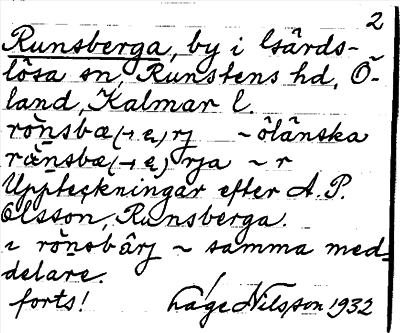 2
Runsberga, by i Gärds-
lösa sn, Runstens hd, Ö-
land, Kalmar l.
rönsbæ(→e)rj ~ ölänska
rönsbæ(→e)rja ~ r
Uppteckningar efter A. P.
Olsson, Runsberga.
i rönsbärj ~ samma med-
delare.
forts! Åage Nilsson 1932